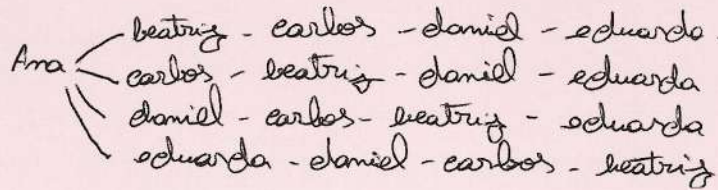 beatriz - carlos - daniel - eduarda
Ana carlos - beatriz - daniel - eduarda
daniel - carlos - beatriz - eduarda
eduarda - daniel - carlos - beatriz